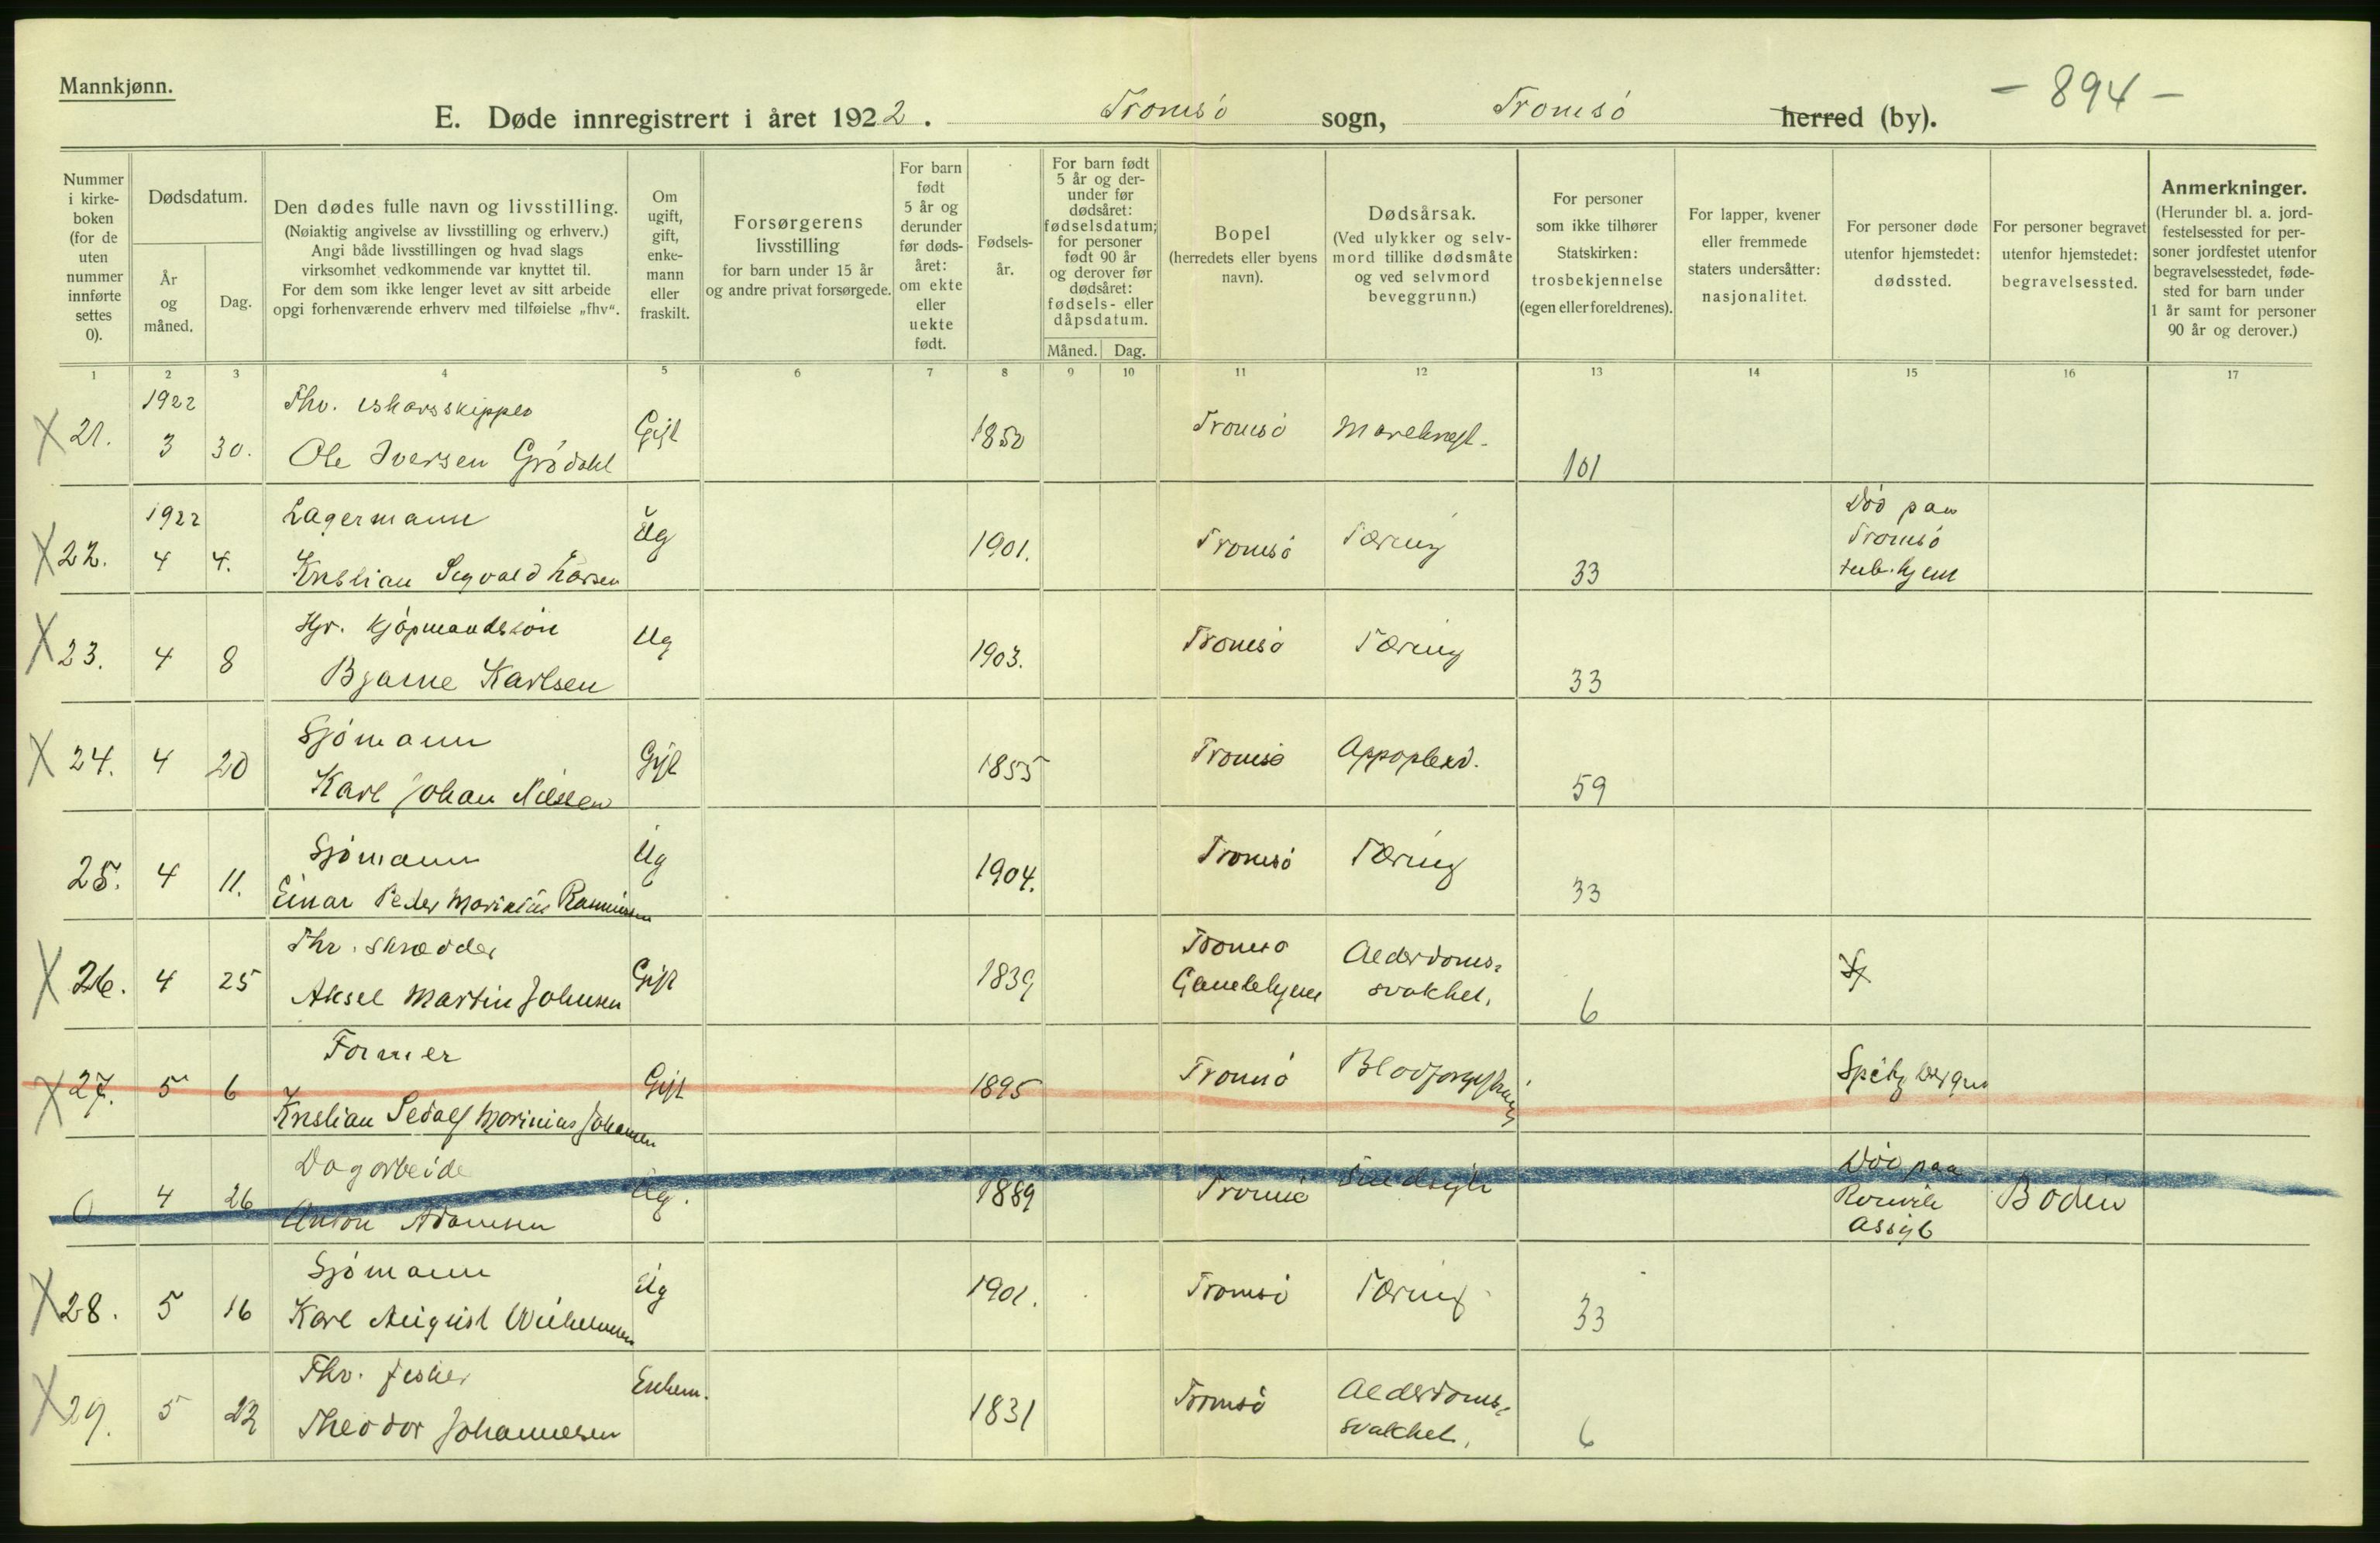 Mannkjønn.
E. Døde innregistrert i året 1922. Tromsö sogn, Tromsö herred (by).
- 894 -
Nummer i kirke-boken (for de uten nummer innførte settes 0).
Dødsdatum.
År og måned.
Dag.
Den dødes fulle navn og livsstilling.
(Nøiaktig angivelse av livsstilling og erhverv.)
Angi både livsstillingen og hvad slags
virksomhet vedkommende var knyttet til.
For dem som ikke lenger levet av sitt arbeide
opgi forhenværende erhverv med tilføielse „fhv“.
Om ugift, gift, enke-mann eller fraskilt.
Forsørgerens livsstilling
for barn under 15 år
og andre privat forsørgede.
For barn født 5 år og derunder før døds-året: om ekte eller uekte født.
Fødsels-år.
For barn født 5 år og der-under før dødsåret: fødselsdatum; for personer født 90 år og derover før dødsåret: fødsels- eller dåpsdatum.
Måned. Dag.
Bopel
(herredets eller byens navn).
Dødsårsak.
(Ved ulykker og selv-mord tillike dødsmåte og ved selvmord beveggrunn.)
For personer som ikke tilhører Statskirken: trosbekjennelse (egen eller foreldrenes).
For lapper, kvener eller fremmede staters undersåtter: nasjonalitet.
For personer døde utenfor hjemstedet: dødssted.
For personer begravet utenfor hjemstedet: begravelsessted.
Anmerkninger.
(Herunder bl. a. jord-festelsessted for per-soner jordfestet utenfor begravelsesstedet, føde-sted for barn under 1 år samt for personer 90 år og derover.)
1 2 3 4 5 6 7 8 9 10 11 12 13 14 15 16 17
1922 Fhv. ishavsskipper
X 21. 3 30. Ole Iversen Grödahl Gift 1850 Tromsö Mavekreft. 101
1922 Lagermann
X 22. 4 4. Kristian Sigvald Larsen Ug 1901. Tromsö Tæring 33 Död paa Tromsö tub.hjem
Hjv. kjöpmandssön
X 23. 4 8 Bjarne Karlsen Ug 1903. Tromsö Tæring 33
Sjömann
X 24. 4 20 Karl Johan Nilsen Gift 1855 Tromsö Appoplexi. 59
Sjömann
25. 4 11. Einar Peder Marinius Ug 1904. Tromsö Tæring 33
Fhv. skrædder
X 26. 4 25 Aksel Martin Johnsen Gift 1839 Tromsö Gamlehjem Alderdoms-svakhet. 6
Former
X 27. 5 6 Kristian Marinius Johansen Gift 1895 Tromsö Blodforgiftning Spitzbergen
Dagarbeide
0 4 26 Anton Adamsen Ug. 1889 Tromsö Sindsyk Död paa Rønvik Assyl Bodin
Sjömann
X 28. 5 16 Karl August Ug 1901. Tromsö Tæring 33
Fhv. fisker
X 29. 5 22 Theodor Johannesen Enkem. 1831 Tromsö Alderdoms-svakhet. 6